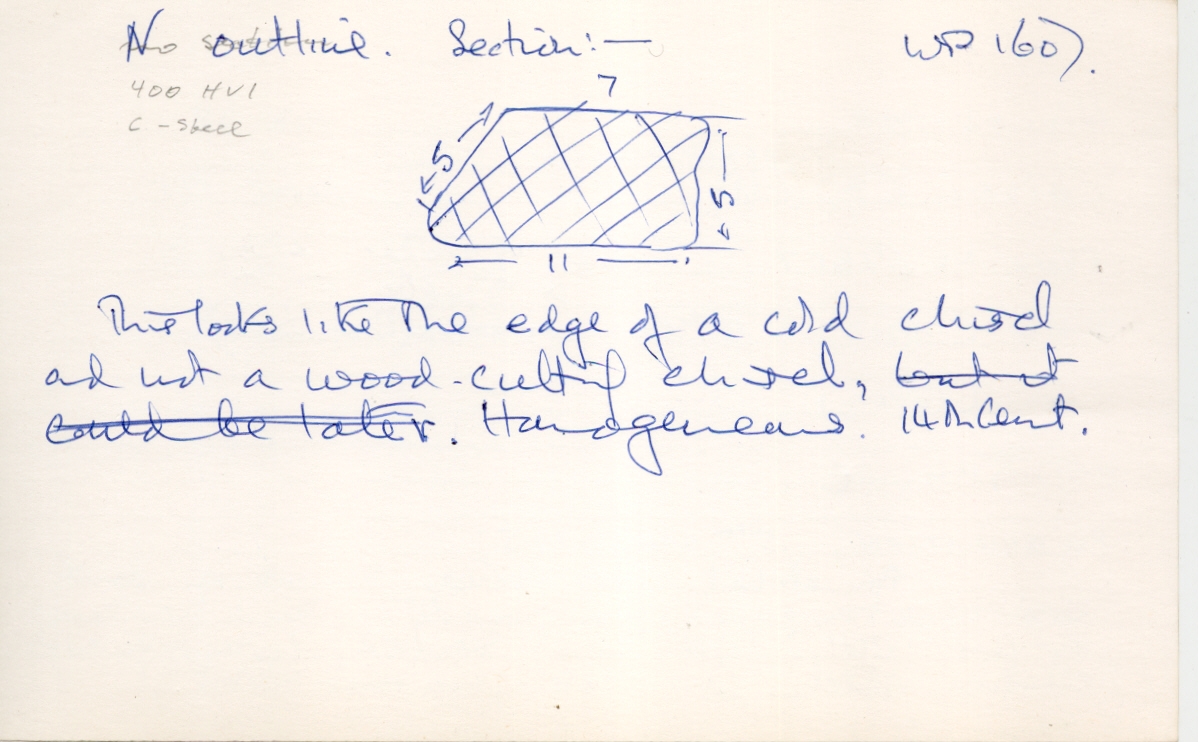 No outline. Section:— WP 1607.
400 HV1
C-Steel
7
5
5
11
This looks like the edge of a cold chisel
and not a wood-cutting chisel, but it
could be later. Homogeneous. 14th Cent.